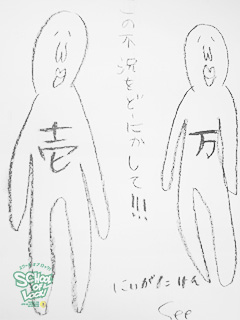 壱
この不況をどーにかして!!!
万
にいがたけん
See
SCHOOL
OF
LOCK!